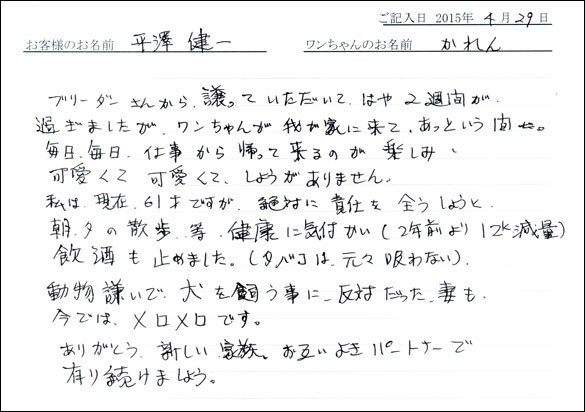 ご記入日 2015年 4月 29日
お客様のお名前 平澤 健一 ワンちゃんのお名前 かれん
ブリーダーさんから、譲っていただいて、はや2週間が
過ぎましたが、ワンちゃんが我が家に来て、あっという間
毎日、毎日、仕事から帰って来るのが楽しみ、
可愛くて可愛くて、しようがありません。
私は、現在、61才ですが、絶対に責任を全うしようと
朝、夕の散歩、等、健康に気付かい(2年前より12k減量)
飲酒も止めました。(タバコは、元々吸わない)、
動物嫌いで、犬を飼う事に、反対だった、妻も、
今では、メロメロです。
ありがとう、新しい家族。お互いよきパートナーで
有り続けましょう。